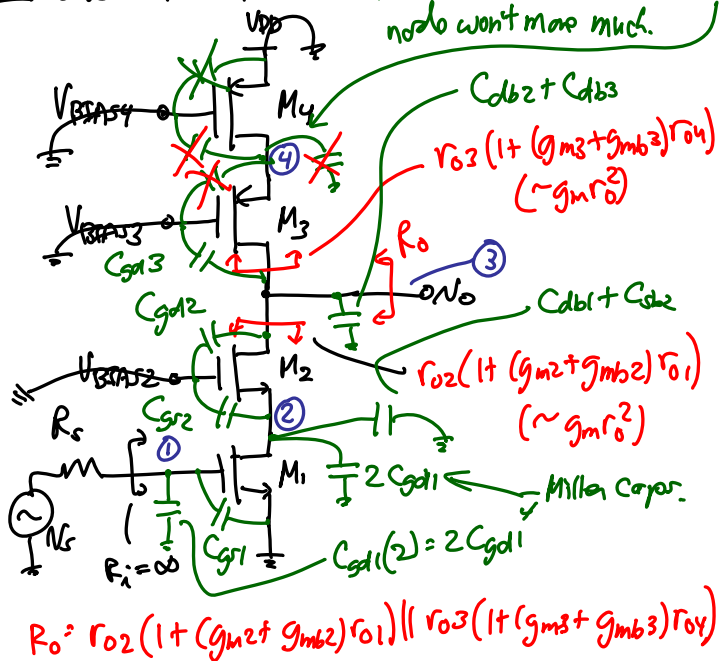 VDD
node won't move much.
VBIAS4
M4
Cdb2 + Cdb3
④
ro3 (1 + (gm3 + gmb3) ro4)
(~gmro²)
VBIAS3
M3
Cgd3
Ro
③
No
Cgd2
Cdb1 + Csb2
VBIAS2
M2
ro2 (1 + (gm2 + gmb2) ro1)
(~gmro²)
Cgs2
②
Rs
①
M1
2Cgd1
Miller Capac.
Ns
Cgs1
Ri = ∞
Cgd1(2) = 2Cgd1
Ro = ro2 (1 + (gm2 + gmb2) ro1) || ro3 (1 + (gm3 + gmb3) ro4)